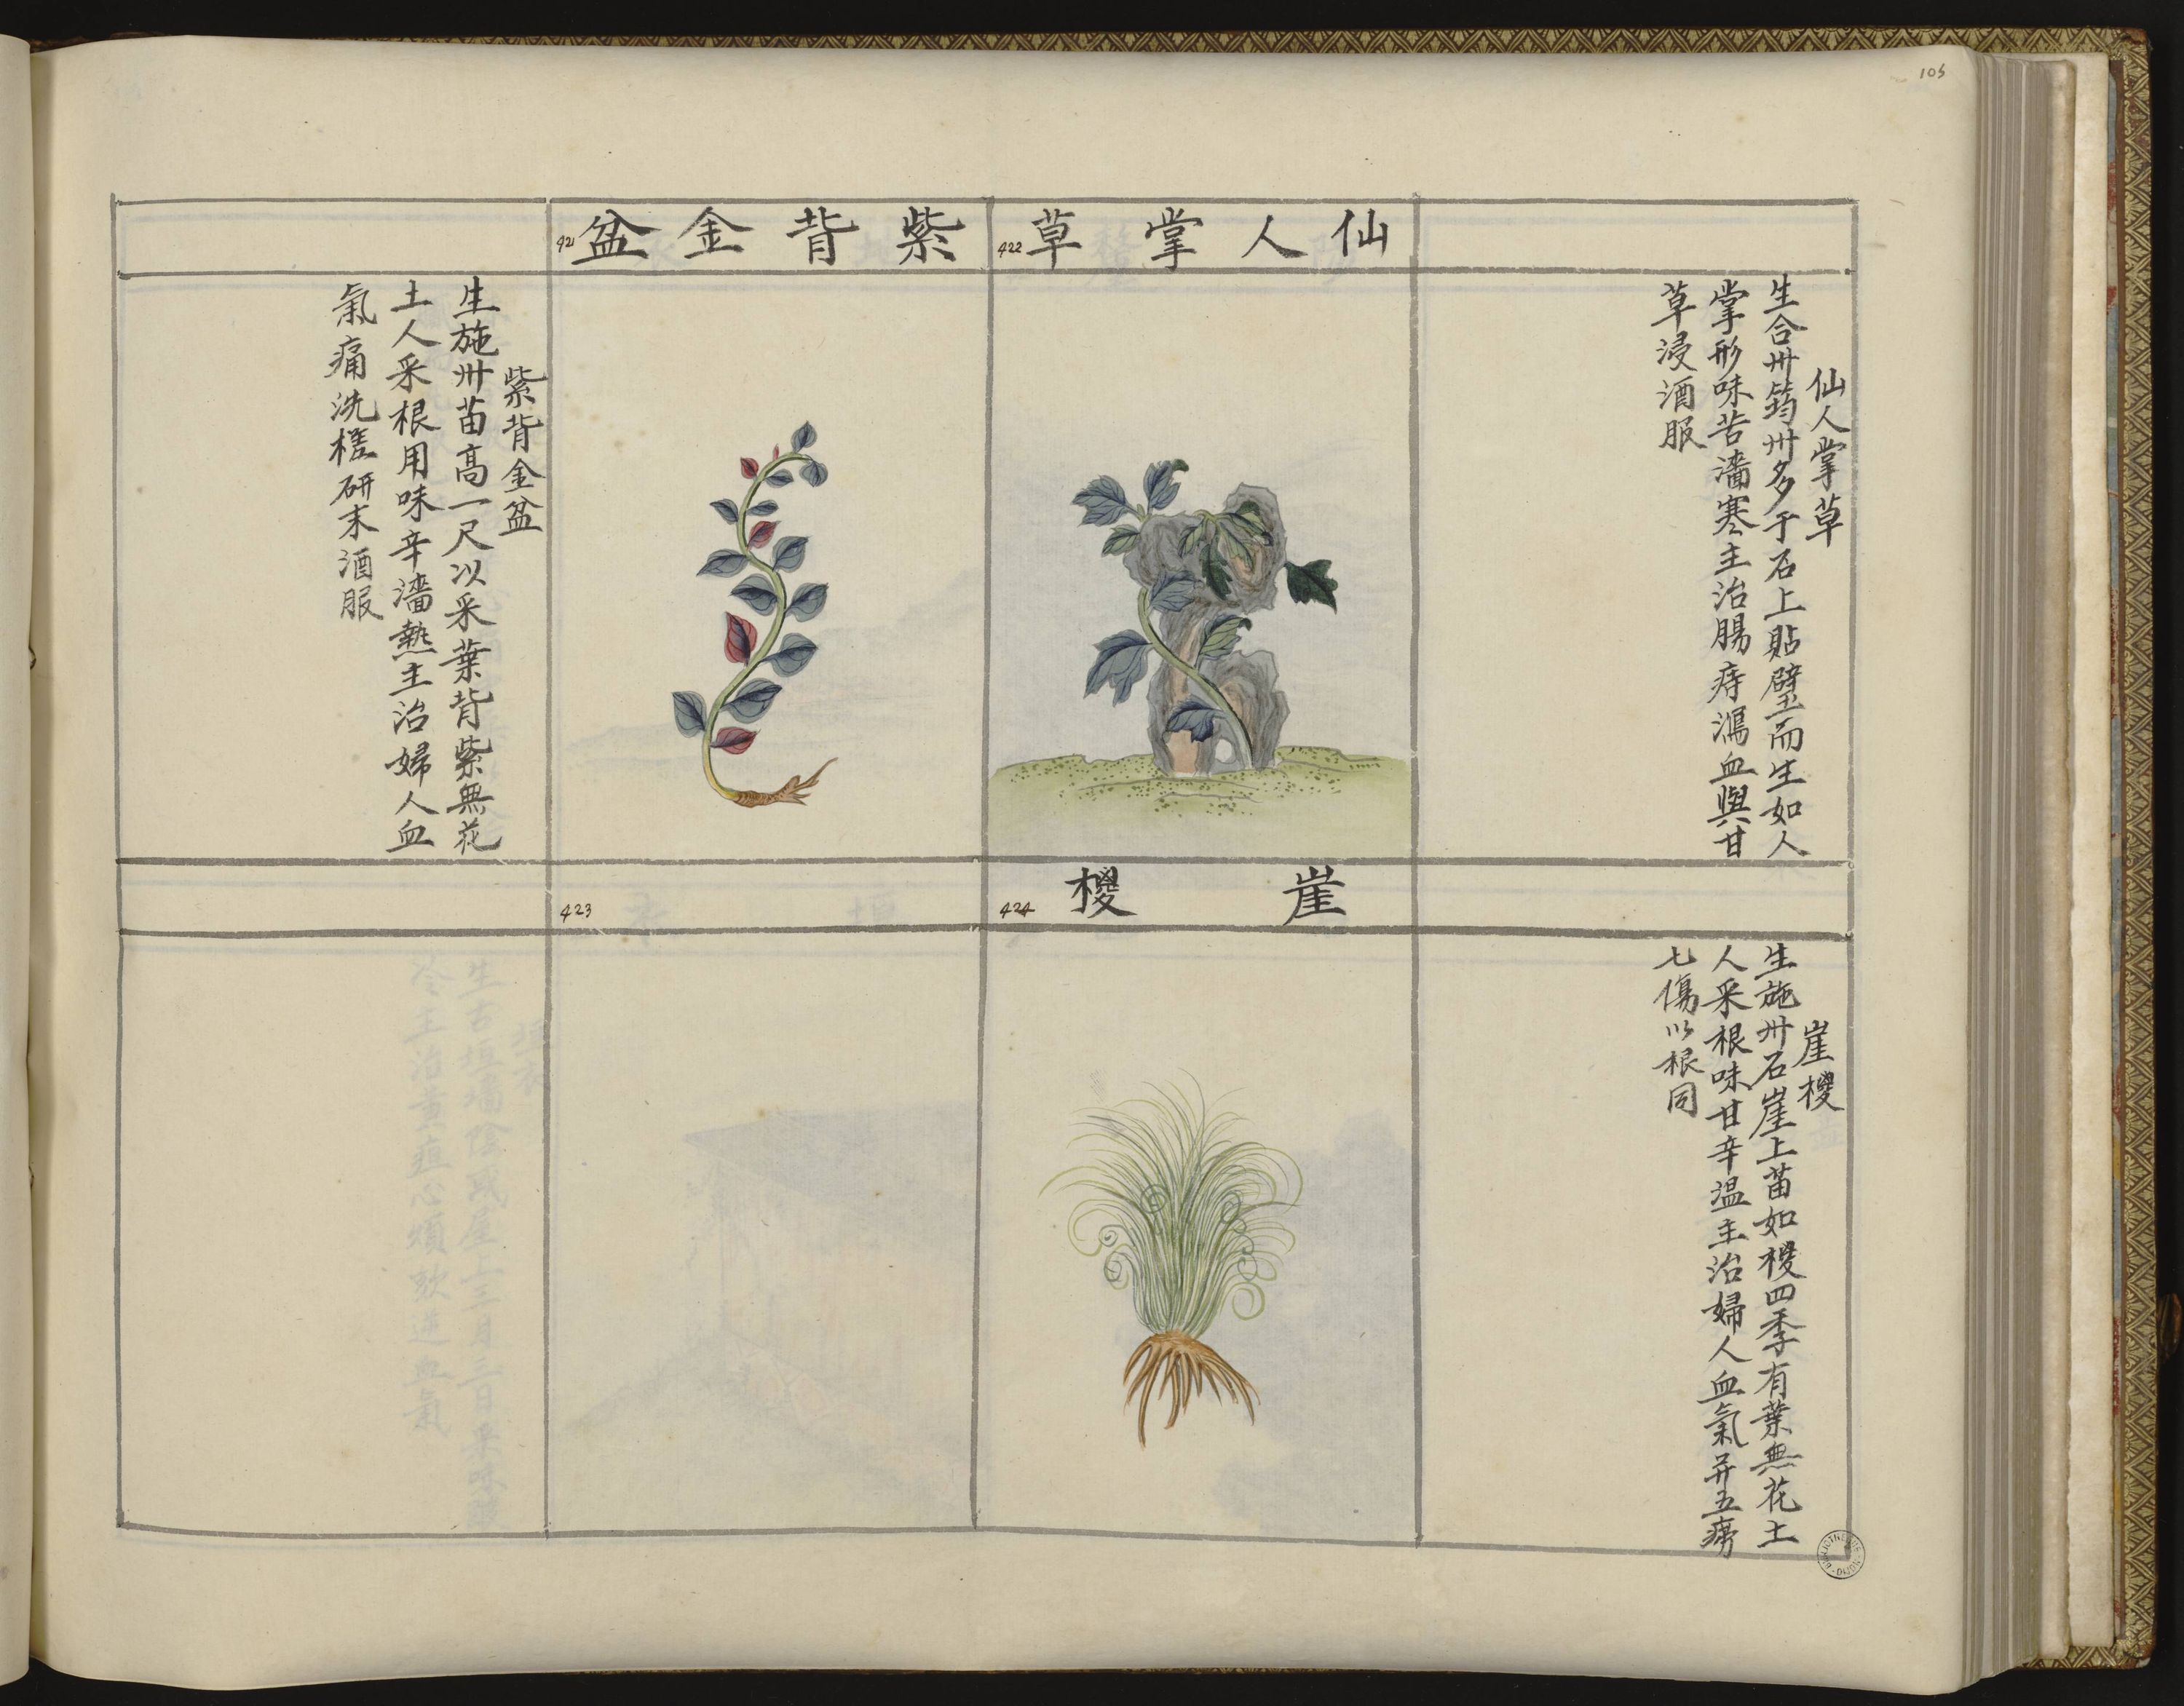 105
仙人掌草
422
仙人掌草
生合州筠州多于石上貼壁而生如人
掌形味苦濇寒主治腸痔瀉血與甘
草浸酒服
紫背金盆
421
紫背金盆
生施州苗高一尺以采葉背紫無花
土人采根用味辛濇熱主治婦人血
氣痛洗楂研末酒服
崖椶
424
崖椶
生施州石崖上苗如椶四季有葉無花土
人采根味甘辛温主治婦人血氣并五癆
七傷以根同
423